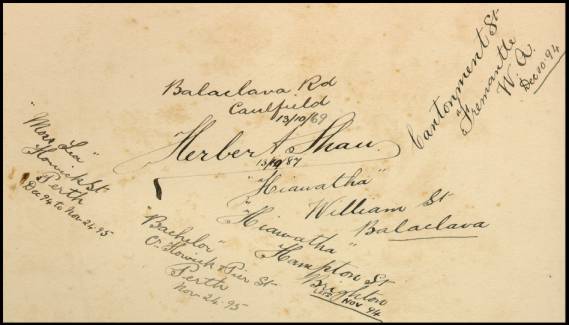 Balaclava Rd
Caulfield
13/10/69
Herbert A. Shaw.
13/10/87
"Hiawatha"
William St
Balaclava
"Hiawatha"
Hampton St
Brighton
Nov 94
Cantonment St
Fremantle
W. A.
Dec 10. 94
Lea"
Howick St
Perth
Dec 94 to Nov 24. 95
"Bachelor"
Cr Howick & Pier St
Perth
Nov 24. 95